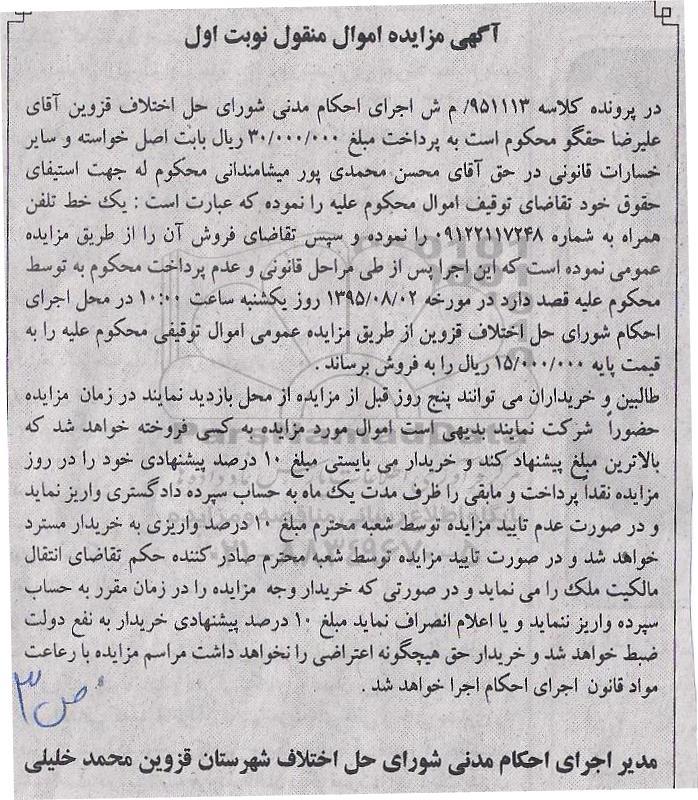 آگهی مزایده اموال منقول نوبت اول
در پرونده کلاسه ۹۵۱۱۱۳/ م ش اجرای احکام مدنی شورای حل اختلاف قزوین آقای
علیرضا حقگو محکوم است به پرداخت مبلغ ۳۰/۰۰۰/۰۰۰ ریال بابت اصل خواسته و سایر
خسارات قانونی در حق آقای محسن محمدی پور میشامندانی محکوم له جهت استیفای
حقوق خود تقاضای توقیف اموال محکوم علیه را نموده که عبارت است : یک خط تلفن
همراه به شماره ۰۹۱۲۲۱۱۷۲۴۸ را نموده و سپس تقاضای فروش آن را از طریق مزایده
عمومی نموده است که این اجرا پس از طی مراحل قانونی و عدم پرداخت محکوم به توسط
محکوم علیه قصد دارد در مورخه ۱۳۹۵/۰۸/۰۲ روز یکشنبه ساعت ۱۰:۰۰ در محل اجرای
احکام شورای حل اختلاف قزوین از طریق مزایده عمومی اموال توقیفی محکوم علیه را به
قیمت پایه ۱۵/۰۰۰/۰۰۰ ریال را به فروش برساند .
طالبین و خریداران می توانند پنج روز قبل از مزایده از محل بازدید نمایند در زمان مزایده
حضوراً شرکت نمایند بدیهی است اموال مورد مزایده به کسی فروخته خواهد شد که
بالاترین مبلغ پیشنهاد کند و خریدار می بایستی مبلغ ۱۰ درصد پیشنهادی خود را در روز
مزایده نقداً پرداخت و مابقی را ظرف مدت یک ماه به حساب سپرده دادگستری واریز نماید
و در صورت عدم تایید مزایده توسط شعبه محترم مبلغ ۱۰ درصد واریزی به خریدار مسترد
خواهد شد و در صورت تایید مزایده توسط شعبه محترم صادر کننده حکم تقاضای انتقال
مالکیت ملک را می نماید و در صورتی که خریدار وجه مزایده را در زمان مقرر به حساب
سپرده واریز ننماید و یا اعلام انصراف نماید مبلغ ۱۰ درصد پیشنهادی خریدار به نفع دولت
ضبط خواهد شد و خریدار حق هیچگونه اعتراضی را نخواهد داشت مراسم مزایده با رعاعت
مواد قانون اجرای احکام اجرا خواهد شد .
ص ۳
مدیر اجرای احکام مدنی شورای حل اختلاف شهرستان قزوین محمد خلیلی
ParsNamadData